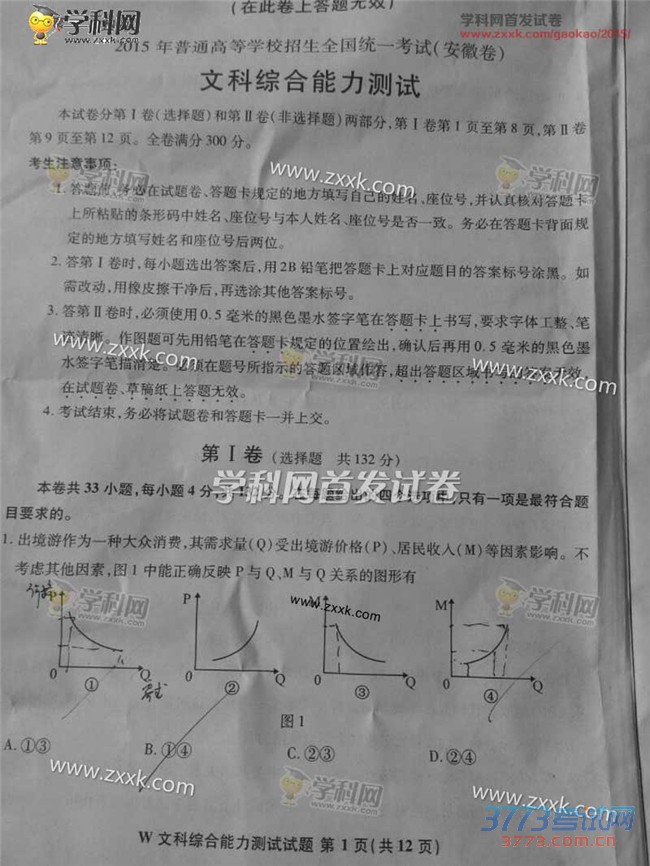 (在此卷上答题无效)
学科网
学科网首发试卷
www.zxxk.com/gaokao/2015/
2015年普通高等学校招生全国统一考试(安徽卷)
文科综合能力测试
本试卷分第Ⅰ卷(选择题)和第Ⅱ卷(非选择题)两部分,第Ⅰ卷第1页至第8页,第Ⅱ卷
第9页至第12页。全卷满分300分。
考生注意事项:
www.zxxk.com
学科网
1. 答题前,务必在试题卷、答题卡规定的地方填写自己的姓名、座位号,并认真核对答题卡
上所粘贴的条形码中姓名、座位号与本人姓名、座位号是否一致。务必在答题卡背面规
定的地方填写姓名和座位号后两位。
2. 答第Ⅰ卷时,每小题选出答案后,用2B铅笔把答题卡上对应题目的答案标号涂黑。如
需改动,用橡皮擦干净后,再选涂其他答案标号。
3. 答第Ⅱ卷时,必须使用0.5毫米的黑色墨水签字笔在答题卡上书写,要求字体工整、笔
迹清晰。作图题可先用铅笔在答题卡规定的位置绘出,确认后再用0.5毫米的黑色墨
www.zxxk.com
学科网
www.zxxk.com
水签字笔描清楚。必须在题号所指示的答题区域作答,超出答题区域书写的答案无效,
在试题卷、草稿纸上答题无效。
4. 考试结束,务必将试题卷和答题卡一并上交。
第Ⅰ卷(选择题 共132分)
学科网首发试卷
本卷共33小题,每小题4分,共132分。在每题给出的四个选项中,只有一项是最符合题
目要求的。
1. 出境游作为一种大众消费,其需求量(Q)受出境游价格(P)、居民收入(M)等因素影响。不
考虑其他因素,图1中能正确反映P与Q、M与Q关系的图形有
学科网
www.zxxk.com
学科网
P P M M
0 Q 0 Q 0 Q 0 Q
① ② ③ ④
图1
A. ①③ B. ①④ C. ②③ D. ②④
www.zxxk.com
学科网
www.zxxk.com
W 文科综合能力测试试题 第1页(共12页)
3773考试网
3773.com.cn